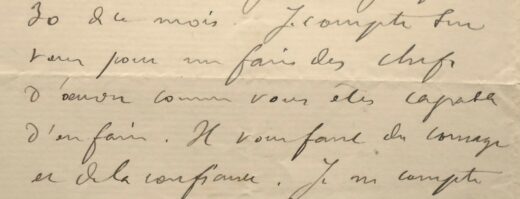 30 de ce mois. Je compte sur
vous pour me faire des chefs
d'œuvre comme vous êtes capable
d'en faire. Il vous faut du courage
et de la confiance. Je me compte